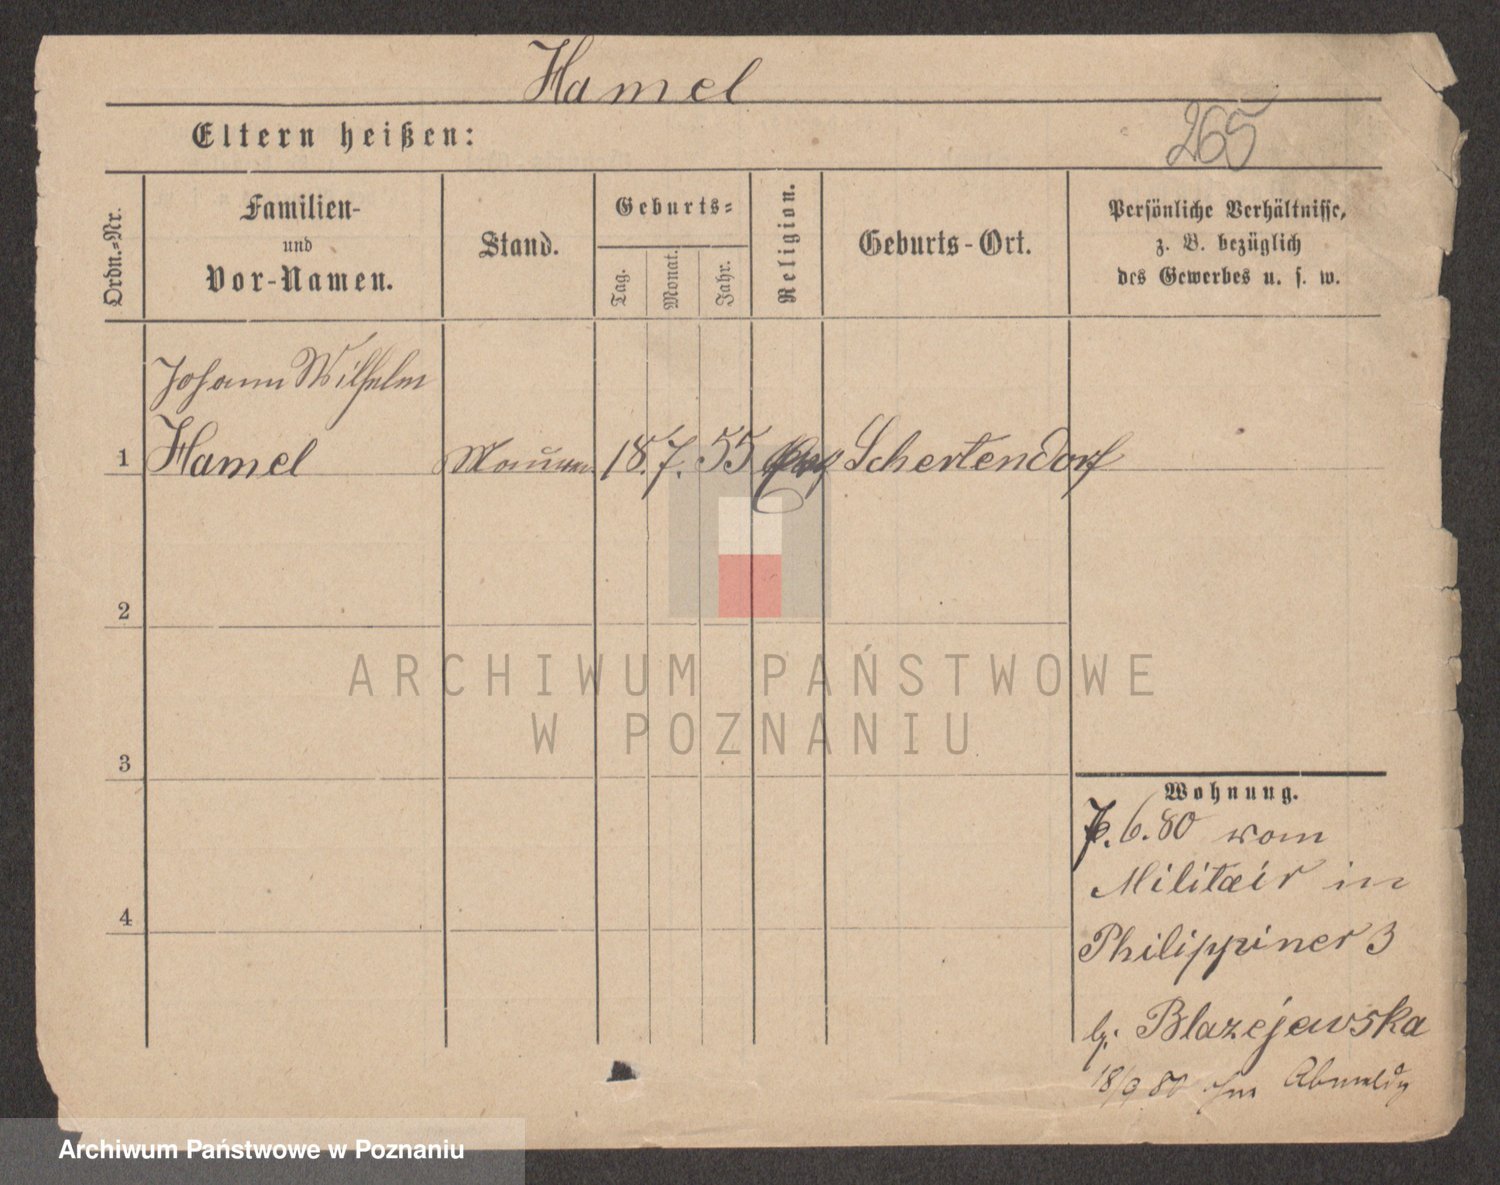 Hamel
265
Eltern heißen:
Ordn.=Nr.
Familien-
und
Vor-Namen.
Stand.
Geburts=
Tag.
Monat.
Jahr.
Religion.
Geburts-Ort.
Persönliche Verhältnisse,
z. B. bezüglich
des Gewerbes u. s. w.
Johann Wilhelm
1 Hamel 18. 7. 55 Schertendorf
2
3
4
Wohnung.
7. 6. 80 vom
Militair in
Philippiner 3
Blazejewska
18/9 80
ARCHIWUM PAŃSTWOWE
W POZNANIU
Archiwum Państwowe w Poznaniu